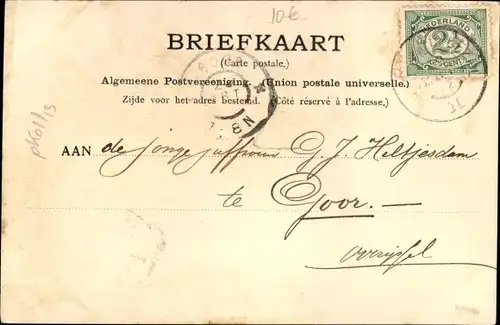 10€
BRIEFKAART
(Carte postale.)
Algemeene Postvereeniging. (Union postale universelle.)
Zijde voor het adres bestemd. (Côté réservé à l'adresse.)
NEDERLAND
2½
CENT
8 N
pk011/13
AAN de jonge juffrouw G. J. Heltjesdam
te Goor. —
Overijssel